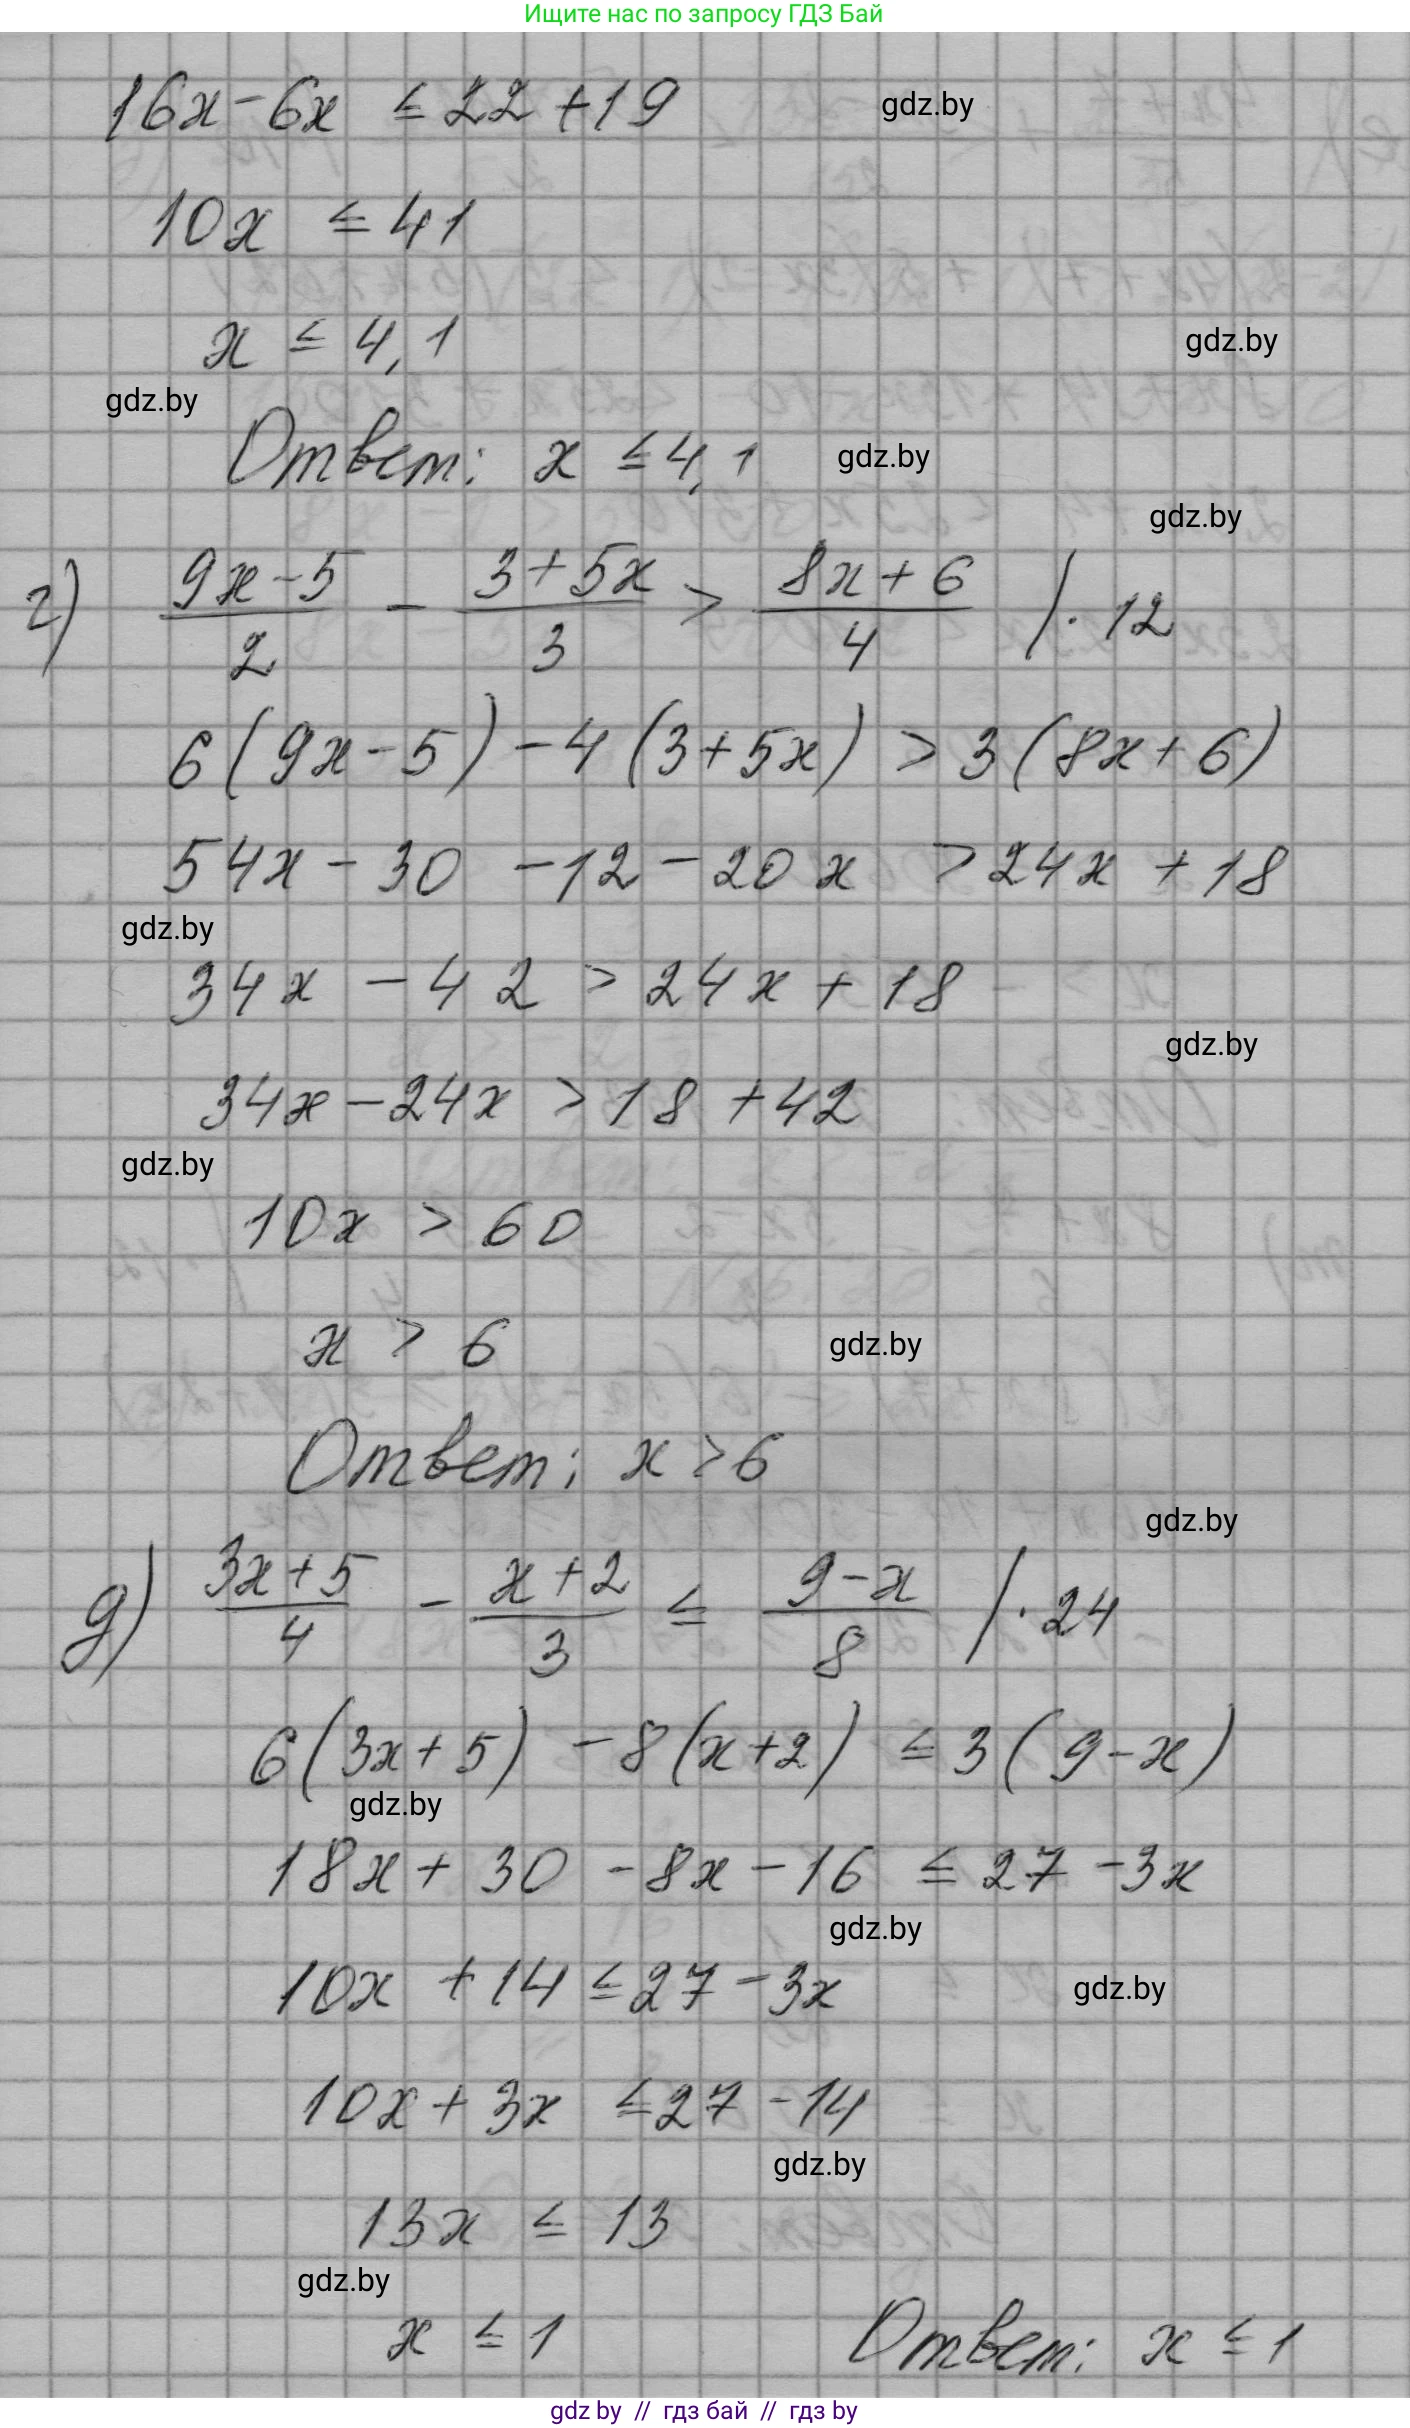 Ищите нас по запросу ГДЗ Бай
16x - 6x ≤ 22 + 19
gdz.by
10x ≤ 41
x ≤ 4,1
gdz.by
gdz.by
Ответ: x ≤ 4,1
gdz.by
gdz.by
г) (9x-5)/2 - (3+5x)/3 > (8x+6)/4 /·12
6(9x-5) - 4(3+5x) > 3(8x+6)
54x - 30 - 12 - 20x > 24x + 18
gdz.by
34x - 42 > 24x + 18
gdz.by
34x - 24x > 18 + 42
gdz.by
10x > 60
x > 6
gdz.by
Ответ: x > 6
gdz.by
д) (3x+5)/4 - (x+2)/3 ≤ (9-x)/8 /·24
6(3x+5) - 8(x+2) ≤ 3(9-x)
gdz.by
18x + 30 - 8x - 16 ≤ 27 - 3x
gdz.by
10x + 14 ≤ 27 - 3x
gdz.by
10x + 3x ≤ 27 - 14
gdz.by
13x ≤ 13
gdz.by
x ≤ 1 Ответ: x ≤ 1
gdz by // гдз бай // гдз by